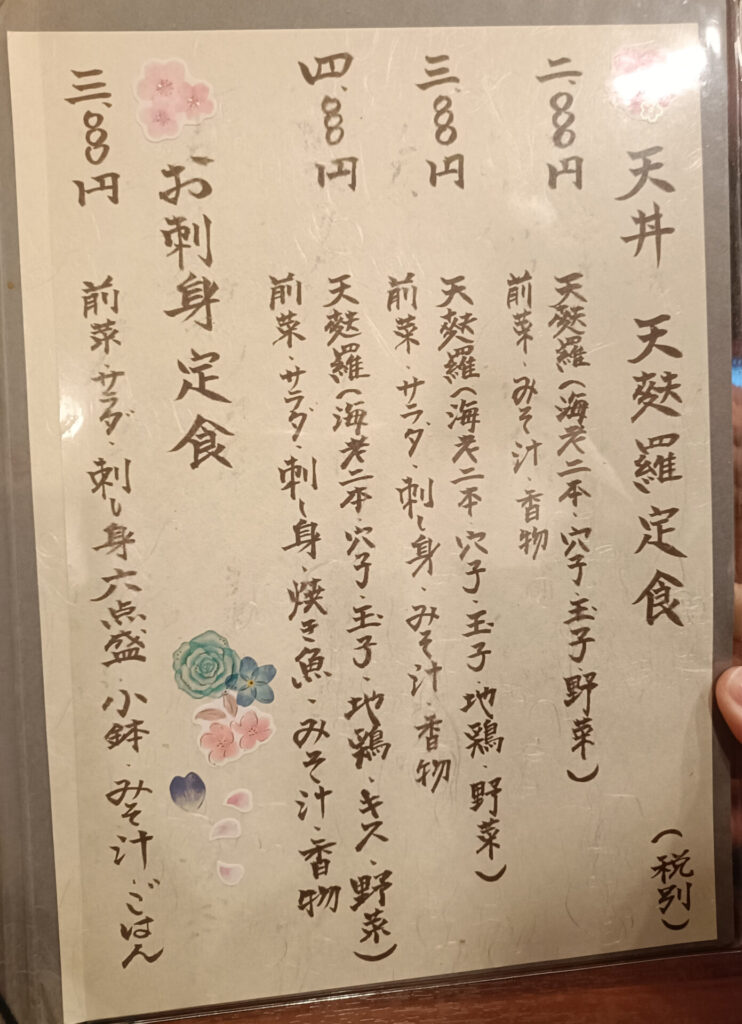 天丼　天麩羅定食　(税別)
二、〇〇〇円　天麩羅(海老二本・穴子・玉子・野菜)
前菜・みそ汁・香物
三、〇〇〇円　天麩羅(海老二本・穴子・玉子・地鶏・野菜)
前菜・サラダ・刺し身・みそ汁・香物
四、〇〇〇円　天麩羅(海老二本・穴子・玉子・地鶏・キス・野菜)
前菜・サラダ・刺し身・焼き魚・みそ汁・香物
お刺身定食
三、〇〇〇円　前菜・サラダ・刺し身六点盛・小鉢・みそ汁・ごはん